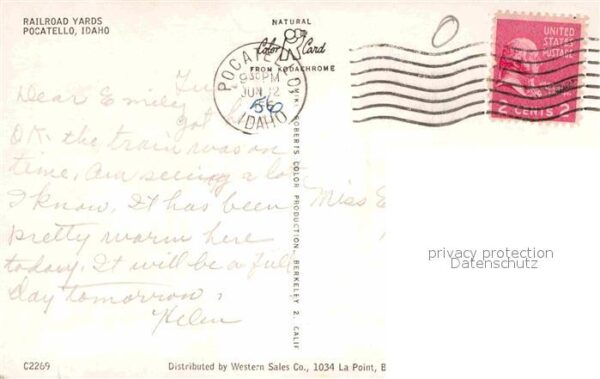 RAILROAD YARDS
POCATELLO, IDAHO
NATURAL
Color Card
FROM KODACHROME
POCATELLO
9 30 PM
JUN 12
56
IDAHO
UNITED STATES POSTAGE
2 CENTS 2
Dear Emily
Got
OK. the train was on
time. Am seeing a lo
I know. It has been
pretty warm here
today. It will be a full
day tomorrow.
Helen
Miss E
MIKE ROBERTS COLOR PRODUCTION, BERKELEY 2, CALIF
privacy protection
Datenschutz
C2269
Distributed by Western Sales Co., 1034 La Point, B